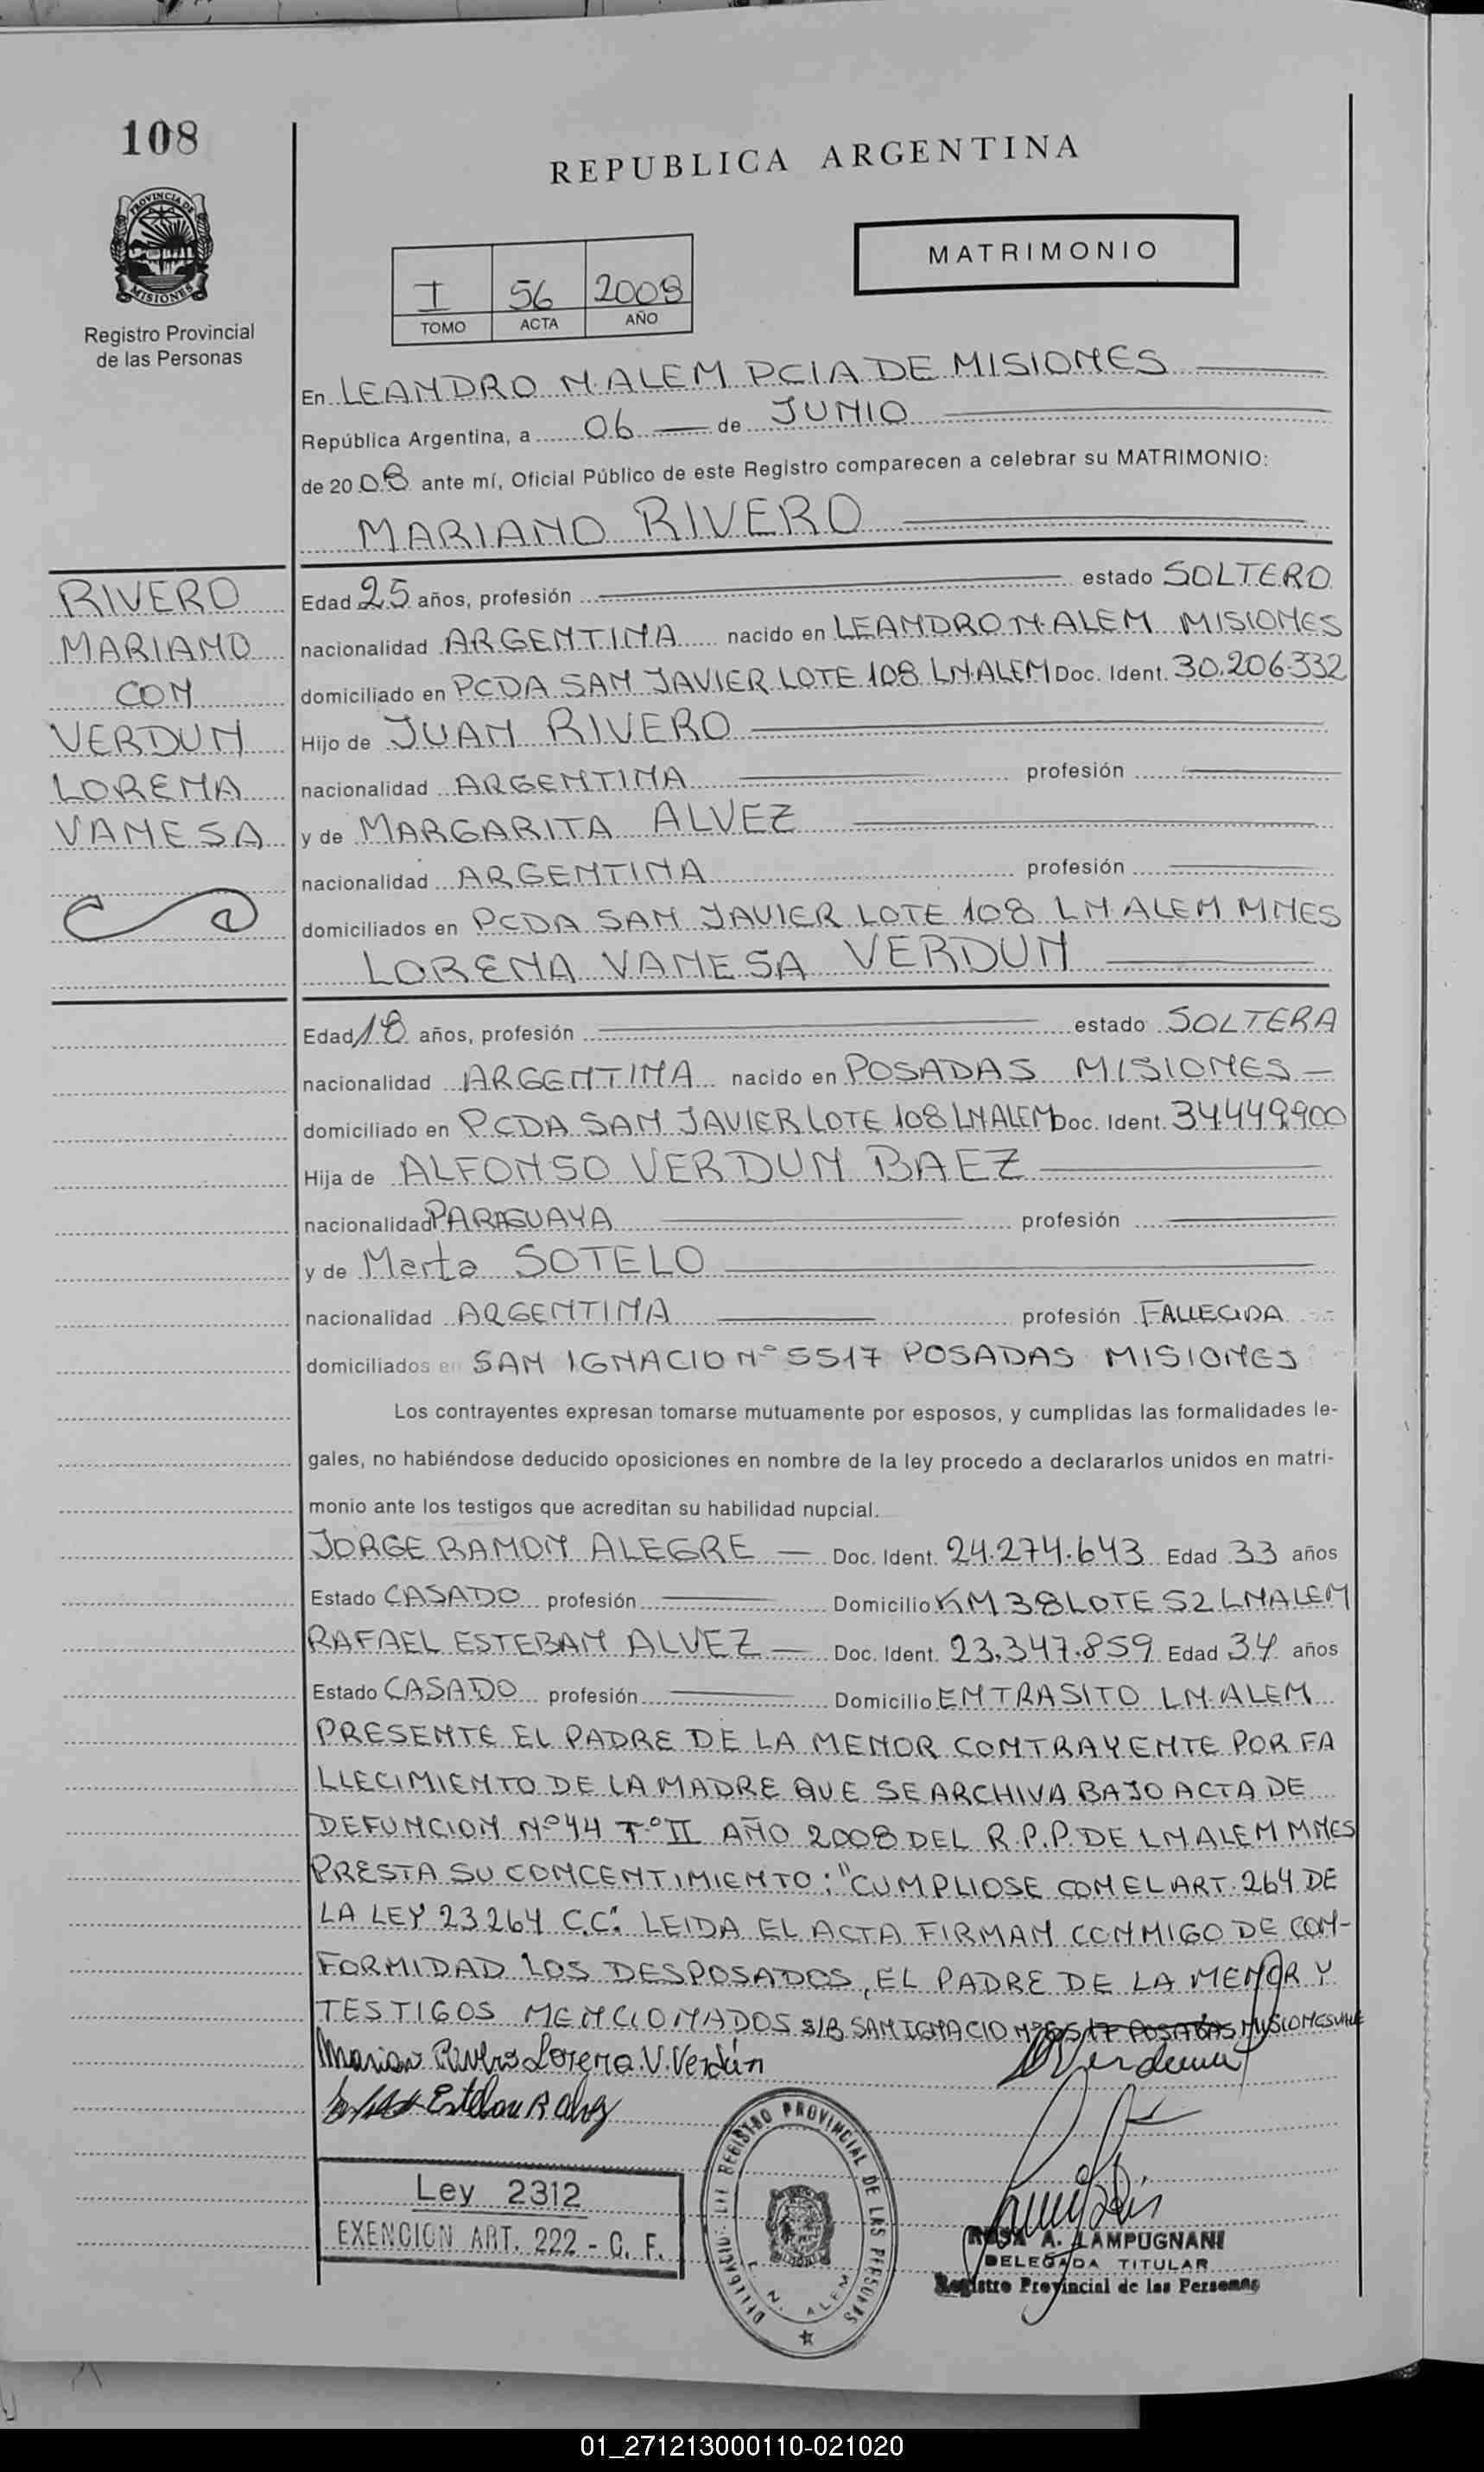 108
REPUBLICA ARGENTINA
PROVINCIA DE
MISIONES
Registro Provincial
de las Personas
MATRIMONIO
I 56 2008
TOMO ACTA AÑO
En LEANDRO N. ALEM PCIA DE MISIONES
República Argentina, a 06 de JUNIO
de 2008 ante mí, Oficial Público de este Registro comparecen a celebrar su MATRIMONIO:
MARIANO RIVERO
RIVERO
MARIANO
CON
VERDUN
LORENA
VANESA
Edad 25 años, profesión estado SOLTERO
nacionalidad ARGENTINA nacido en LEANDRO N. ALEM MISIONES
domiciliado en PCDA SAN JAVIER LOTE 108 LN.ALEM Doc. Ident. 30.206.332
Hijo de JUAN RIVERO
nacionalidad ARGENTINA profesión
y de MARGARITA ALVEZ
nacionalidad ARGENTINA profesión
domiciliados en PCDA SAN JAVIER LOTE 108 LN ALEM MNES
LORENA VANESA VERDUN
Edad 18 años, profesión estado SOLTERA
nacionalidad ARGENTINA nacido en POSADAS MISIONES
domiciliado en PCDA SAN JAVIER LOTE 108 LN ALEM Doc. Ident. 34.449.900
Hija de ALFONSO VERDUN BAEZ
nacionalidad PARAGUAYA profesión
y de Marta SOTELO
nacionalidad ARGENTINA profesión FALLECIDA
domiciliados en SAN IGNACIO Nº 5517 POSADAS MISIONES
Los contrayentes expresan tomarse mutuamente por esposos, y cumplidas las formalidades le-
gales, no habiéndose deducido oposiciones en nombre de la ley procedo a declararlos unidos en matri-
monio ante los testigos que acreditan su habilidad nupcial.
JORGE RAMON ALEGRE Doc. Ident. 24.274.643 Edad 33 años
Estado CASADO profesión Domicilio KM 38 LOTE 52 LN ALEM
RAFAEL ESTEBAN ALVEZ Doc. Ident. 23.347.859 Edad 34 años
Estado CASADO profesión Domicilio EN TRASITO LN. ALEM
PRESENTE EL PADRE DE LA MENOR CONTRAYENTE POR FA
LLECIMIENTO DE LA MADRE QUE SE ARCHIVA BAJO ACTA DE
DEFUNCION Nº 44 Tº II AÑO 2008 DEL R.P.P. DE LN ALEM MNES
PRESTA SU CONCENTIMIENTO: "CUMPLIOSE CON EL ART. 264 DE
LA LEY 23264 C.C." LEIDA EL ACTA FIRMAN CONMIGO DE CON-
FORMIDAD LOS DESPOSADOS, EL PADRE DE LA MENOR Y
TESTIGOS MENCIONADOS S/B SAN IGNACIO Nº 5517 POSADAS MISIONES VALE
Mariano Rivero Lorena.V.Verdún
Verdun
Esteban R Alvez
Ley 2312
EXENCION ART. 222 - C. F.
DELEGACION DEL REGISTRO PROVINCIAL DE LAS PERSONAS
L. N. ALEM
ROSA A. LAMPUGNANI
DELEGADA TITULAR
Registro Provincial de las Personas
01_271213000110-021020